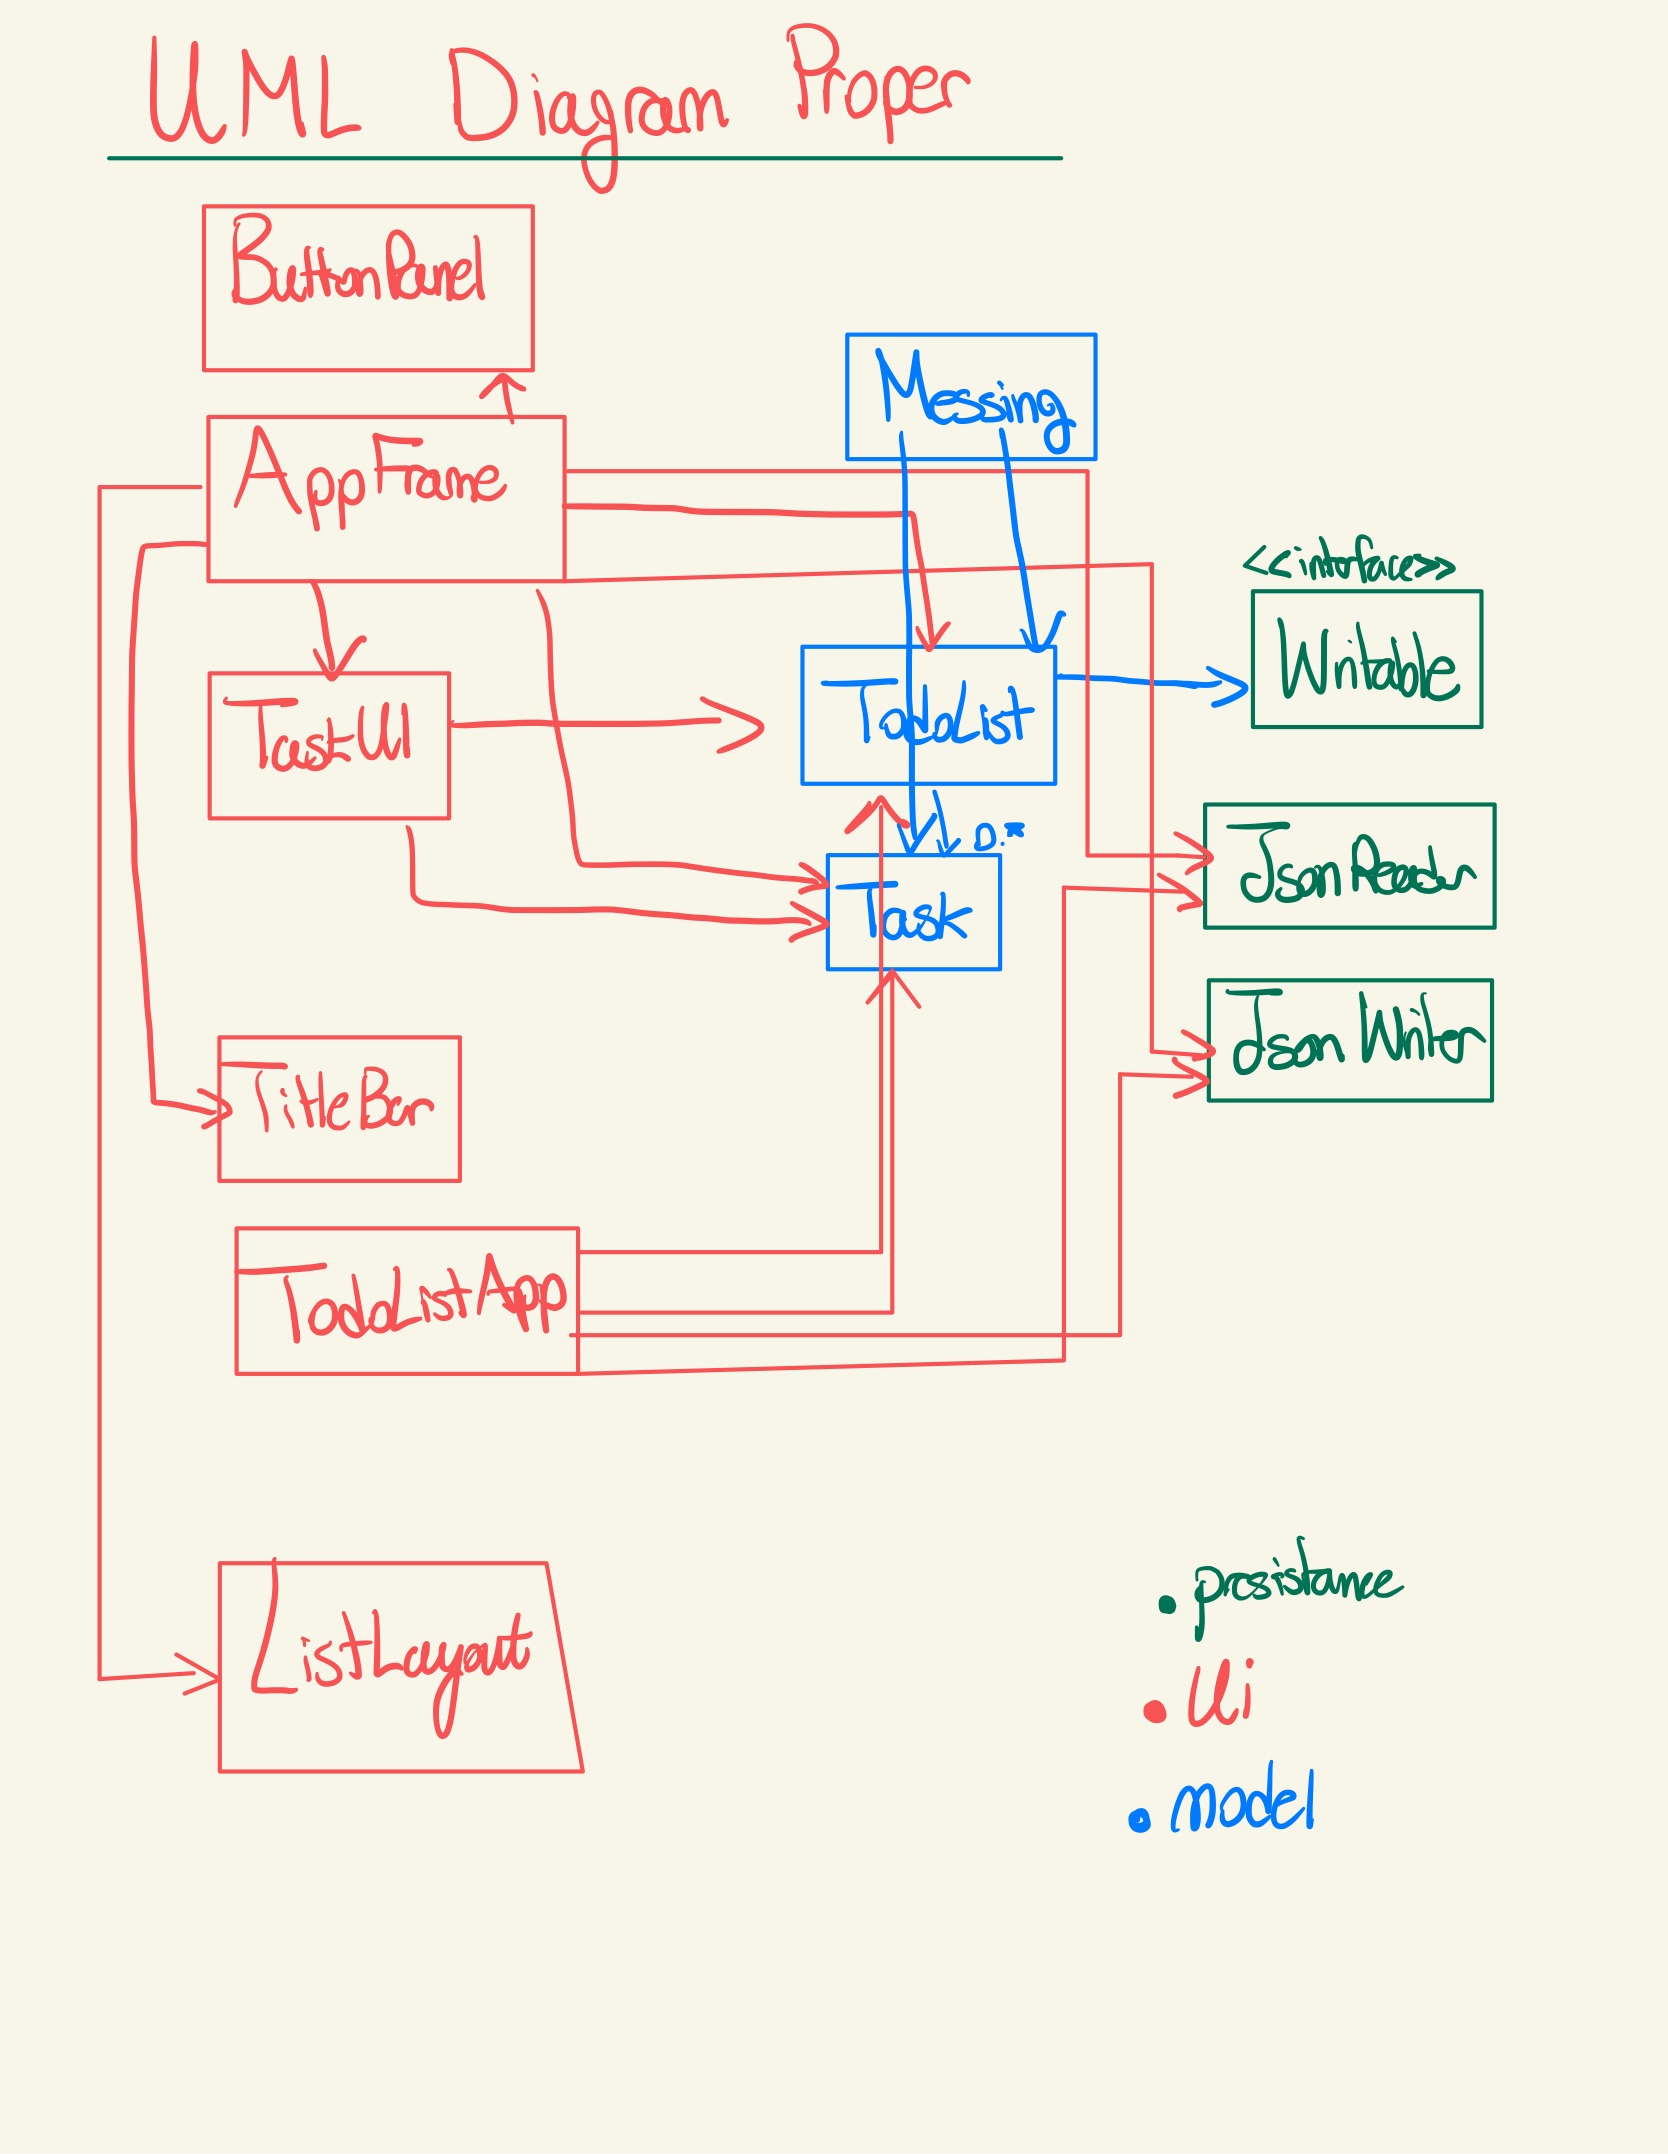 UML Diagram Proper
ButtonPanel
Messing
AppFrame
<<interface>>
Writable
TaskUI
TodoList
0.*
JsonReader
Task
Json Writer
TitleBar
TodoListApp
ListLayout
• persistance
• Ui
• model